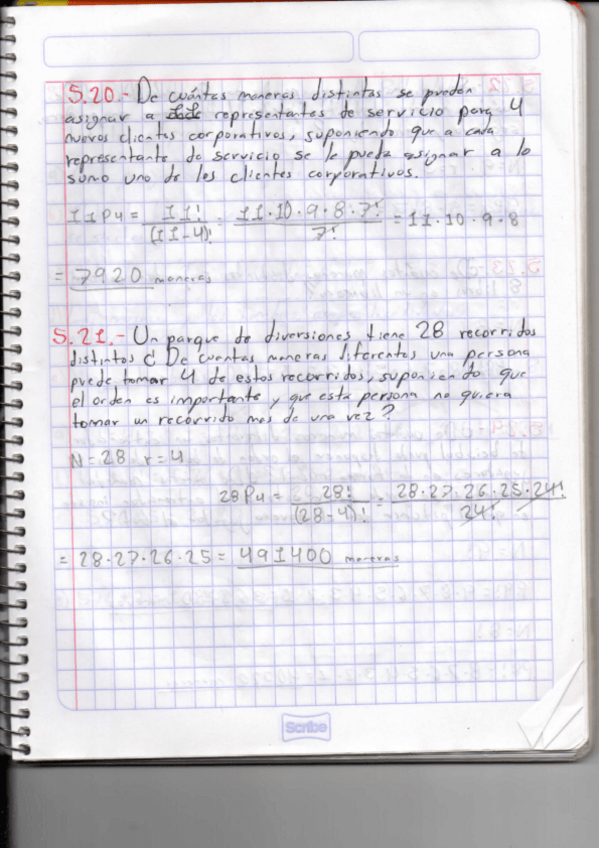 5.20.- De cuántas maneras distintas se pueden
asignar a representantes de servicio para 4
nuevos clientes corporativos, suponiendo que a cada
representante de servicio se le puede asignar a lo
sumo uno de los clientes corporativos.
11P4 = 11! / (11-4)! = 11·10·9·8·7! / 7! = 11·10·9·8
= 7920 maneras
5.21.- Un parque de diversiones tiene 28 recorridos
distintos ¿ De cuantas maneras diferentes una persona
puede tomar 4 de estos recorridos, suponiendo que
el orden es importante y que esta persona no quiera
tomar un recorrido mas de una vez?
N=28 r=4
28P4 = 28! / (28-4)! = 28·27·26·25·24! / 24!
= 28·27·26·25 = 491400 maneras
Scribe